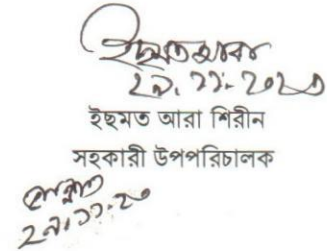 ইছমতআরা
২৯.১১.২০২০
ইছমত আরা শিরীন
সহকারী উপপরিচালক
২৯.১১.২০